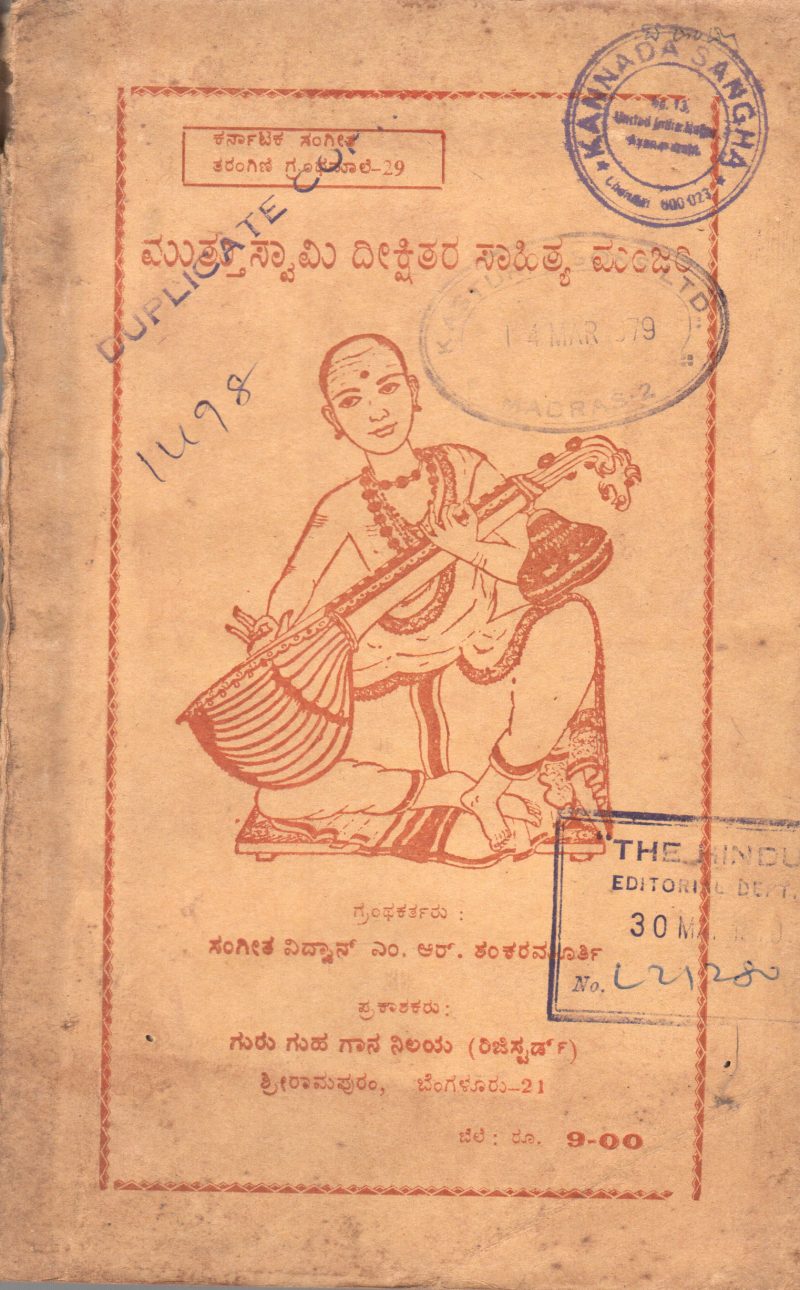 KANNADA SANGHA
No. 13,
United India Nagar
Ayanavaram
600 023
ಕರ್ನಾಟಕ ಸಂಗೀತ
ತರಂಗಿಣಿ ಗ್ರಂಥಮಾಲೆ-29
DUPLICATE COPY
ಮುತ್ತುಸ್ವಾಮಿ ದೀಕ್ಷಿತರ ಸಾಹಿತ್ಯ ಮಂಜರಿ
LTD
14 MAR 1979
MADRAS-2
"THE HINDU
EDITORIAL DEPT.
30
No.
ಗ್ರಂಥಕರ್ತರು :
ಸಂಗೀತ ವಿದ್ವಾನ್ ಎಂ. ಆರ್. ಶಂಕರಮೂರ್ತಿ
ಪ್ರಕಾಶಕರು:
ಗುರು ಗುಹ ಗಾನ ನಿಲಯ (ರಿಜಿಸ್ಟರ್ಡ್)
ಶ್ರೀರಾಮಪುರಂ, ಬೆಂಗಳೂರು-21
ಬೆಲೆ : ರೂ. 9-00